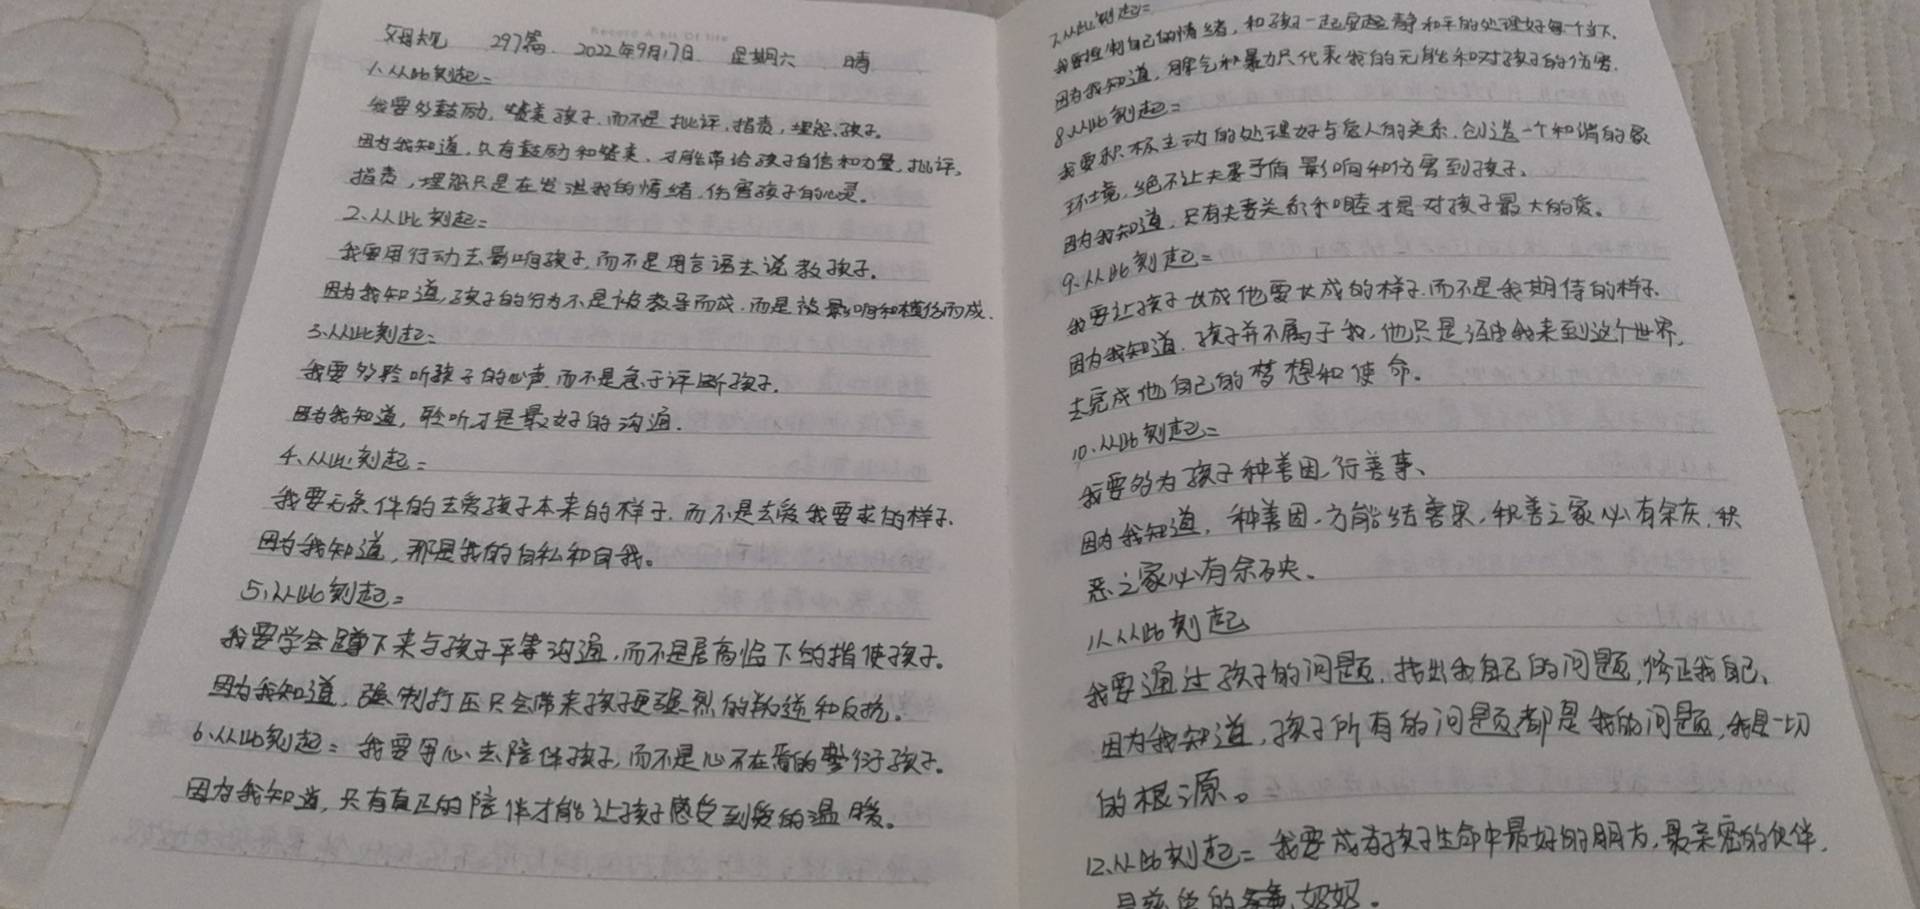 父母规 297篇 2022年9月17日 星期六 晴
1、从此刻起:
我要多鼓励,赞美孩子,而不是批评,指责,埋怨孩子。
因为我知道,只有鼓励和赞美,才能带给孩子自信和力量,批评,
指责,埋怨只是在发泄我的情绪,伤害孩子的心灵。
2、从此刻起:
我要用行动去影响孩子,而不是用言语去说教孩子。
因为我知道,孩子的行为不是被教导而成,而是被影响和模仿而成.
3、从此刻起:
我要多聆听孩子的心声,而不是急于评断孩子.
因为我知道,聆听才是最好的沟通.
4、从此刻起:
我要无条件的去爱孩子本来的样子,而不是去爱我要求的样子.
因为我知道,那是我的自私和自我。
5、从此刻起:
我要学会蹲下来与孩子平等沟通,而不是居高临下的指使孩子。
因为我知道,强制打压只会带来孩子更强烈的叛逆和反抗。
6、从此刻起:我要用心去陪伴孩子,而不是心不在焉的敷衍孩子。
因为我知道,只有真正的陪伴才能让孩子感受到爱的温暖。
7、从此刻起:
我要控制自己的情绪,和孩子一起安静和平的处理好每一个当下.
因为我知道,脾气和暴力只代表我的无能和对孩子的伤害.
8、从此刻起:
我要积极主动的处理好与爱人的关系,创造一个和谐的家
环境,绝不让夫妻矛盾影响和伤害到孩子、
因为我知道,只有夫妻关系和睦才是对孩子最大的爱。
9、从此刻起:
我要让孩子长成他要长成的样子,而不是我期待的样子.
因为我知道,孩子并不属于我,他只是经由我来到这个世界,
去完成他自己的梦想和使命。
10、从此刻起:
我要多为孩子种善因,行善事、
因为我知道,种善因,方能结善果,积善之家必有余庆,积
恶之家必有余殃、
11、从此刻起
我要通过孩子的问题,找出我自己的问题,修正我自己、
因为我知道,孩子所有的问题都是我的问题,我是一切
的根源。
12、从此刻起:我要成为孩子生命中最好的朋友,最亲密的伙伴,
妈妈。